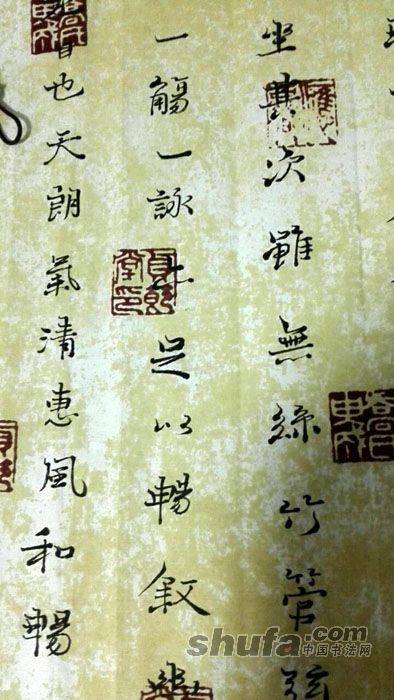 坐其次雖無絲竹管弦
一觴一詠亦足以暢叙幽
日也天朗氣清惠風和暢
shufa.com
中国书法网